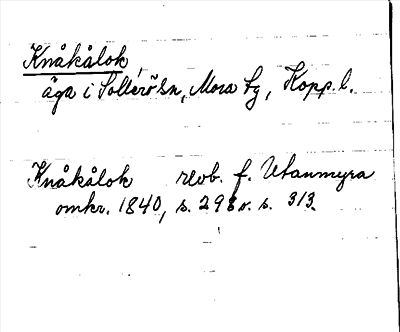 Knåkålok,
äga i Sollerö sn, Mora tg, Kopp. l.
Knåkålok revb. f. Utanmyra
omkr. 1840, s. 298 o. s. 313.